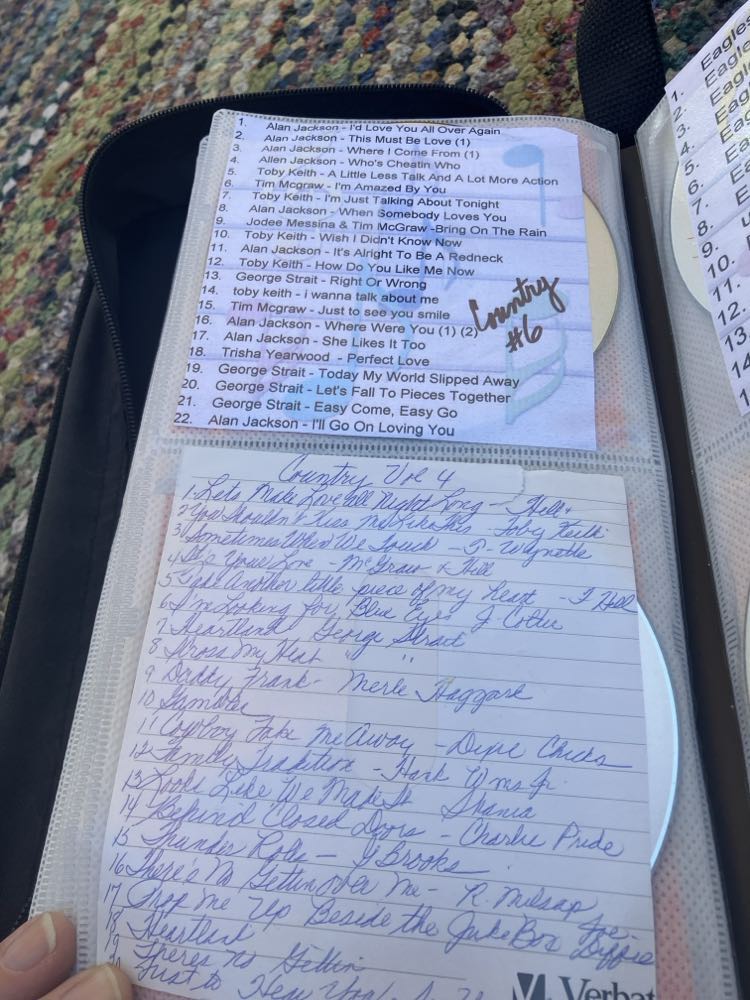 1. Alan Jackson - I'd Love You All Over Again
2. Alan Jackson - This Must Be Love (1)
3. Alan Jackson - Where I Come From (1)
4. Allen Jackson - Who's Cheatin Who
5. Toby Keith - A Little Less Talk And A Lot More Action
6. Tim Mcgraw - I'm Amazed By You
7. Toby Keith - I'm Just Talking About Tonight
8. Alan Jackson - When Somebody Loves You
9. Jodee Messina & Tim McGraw -Bring On The Rain
10. Toby Keith - Wish I Didn't Know Now
11. Alan Jackson - It's Alright To Be A Redneck
12. Toby Keith - How Do You Like Me Now
13. George Strait - Right Or Wrong
14. toby keith - i wanna talk about me
15. Tim Mcgraw - Just to see you smile
16. Alan Jackson - Where Were You (1) (2)
17. Alan Jackson - She Likes It Too
18. Trisha Yearwood - Perfect Love
19. George Strait - Today My World Slipped Away
20. George Strait - Let's Fall To Pieces Together
21. George Strait - Easy Come, Easy Go
22. Alan Jackson - I'll Go On Loving You
Country
#6
Country Vol 4
1. Lets Make Love all Night Long - Hill
2 You Shouldn't Kiss Me Like This - Toby Keith
3 Sometimes When We Touch -
4 Its Your Love - McGraw & Hill
5 Take Another little piece of my heart - F Hill
6 I'm Looking for Blue Eyes J.
7 Heartland George Strait
8 Cross My Heart " "
9 Daddy Frank - Merle Haggard
10 Gambler
11 Cowboy Take Me Away - Dixie Chicks
12 Family Tradition - Hank Wms Jr.
13 Looks Like We Made It Shania
14 Behind Closed Doors - Charlie Pride
15 Thunder Rolls - G Brooks
16 There's No Gettin Over Me - R. Milsap
17 Prop Me Up Beside the Juke Box Joe Diffie
18 Heartland
19 Theres no Gettin
20 Just to Hear You
Verbat
1. Eagles
2. Eagle
3. Eagl
4. Eag
5. Eag
6. Ea
7. Ea
8. E
9.
10.
11.
12.
13
14
1